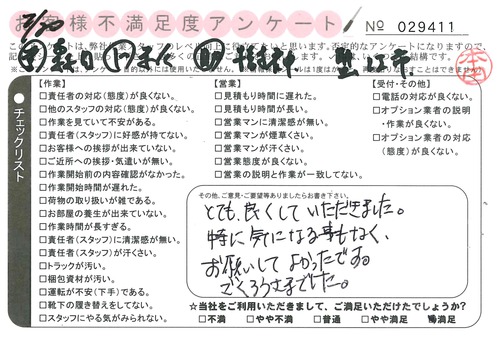 お客様不満足度アンケート
№ 029411
7/30
チェックリスト
【作業】
□責任者の対応(態度)が良くない。
□他のスタッフの対応(態度)が良くない。
□作業を見ていて不安がある。
□責任者(スタッフ)に好感が持てない。
□お客様への挨拶が出来ていない。
□ご近所への挨拶・気遣いが無い。
□作業開始前の内容確認がなかった。
□作業開始時間が遅れた。
□荷物の取り扱いが雑である。
□お部屋の養生が出来ていない。
□作業時間が長すぎる。
□責任者(スタッフ)に清潔感が無い。
□責任者(スタッフ)が汗くさい。
□トラックが汚い。
□梱包資材が汚い。
□運転が不安(下手)である。
□靴下の履き替えをしてない。
□スタッフにやる気がみられない。
【営業】
□見積もり時間に遅れた。
□見積もり時間が長い。
□営業マンに清潔感が無い。
□営業マンが煙草くさい。
□営業マンが汗くさい。
□営業態度が良くない。
□営業の説明と作業が一致してない。
【受付・その他】
□電話の対応が良くない。
□オプション業者の説明
・作業が良くない。
□オプション業者の対応
(態度)が良くない。
その他、ご意見・ご要望等ありましたらお書き下さい。
とても良くしていただきました。
特に気になる事もなく、
お願いしてよかったです。
ごくろうさまでした。
☆当社をご利用いただきまして、ご満足いただけたでしょうか?
□不満 □やや不満 □普通 □やや満足 満足